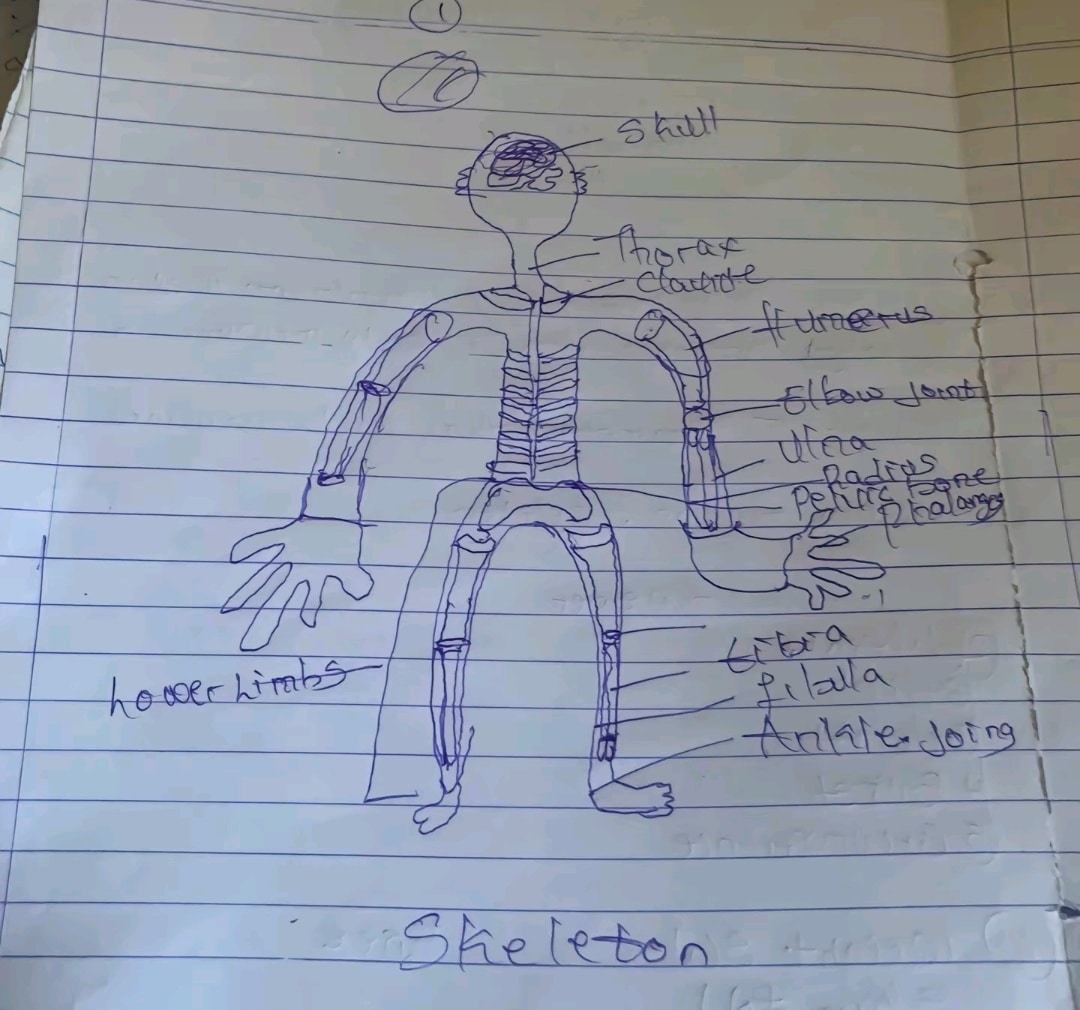 1
Skull
Thorax
Clavicle
Humeerus
Elbow joint
Ulna
Radius
Pelvic bone
Phalanges
tibia
fibulla
Ankle joing
Lower Limbs
Skeleton